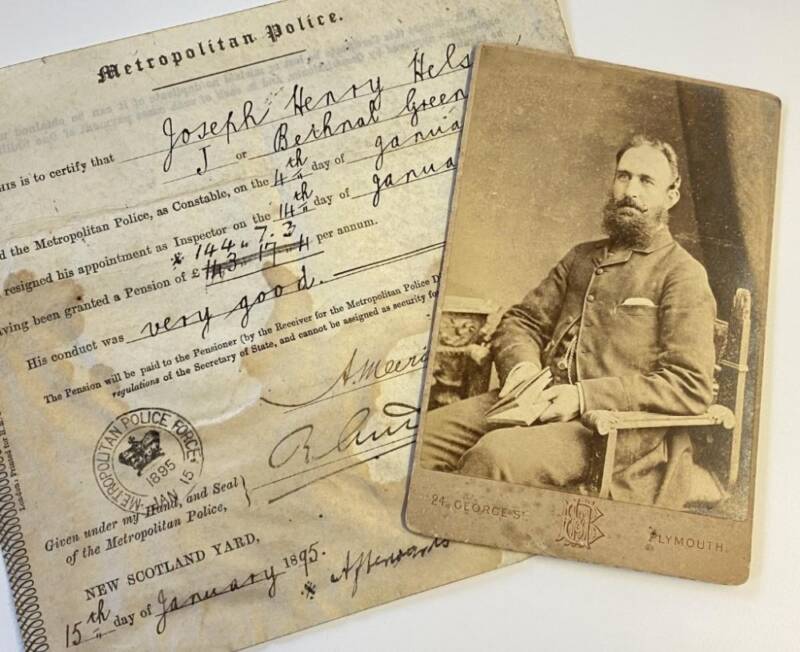 Metropolitan Police.
THIS is to certify that Joseph Henry Hels
J or Bethnal Green
the Metropolitan Police, as Constable, on the 4th day of Janua
resigned his appointment as Inspector on the 14th day of Janua
* 144 " 7. 3
having been granted a Pension of £ 143 " 17 " 4 per annum.
His conduct was very good.
The Pension will be paid to the Pensioner (by the Receiver for the Metropolitan Police D
regulations of the Secretary of State, and cannot be assigned as security for
METROPOLITAN POLICE FORCE
1895
JAN 15
Given under my Hand, and Seal
of the Metropolitan Police,
NEW SCOTLAND YARD,
15th day of January 1895.
* Afterwards
24, GEORGE ST.
PLYMOUTH.